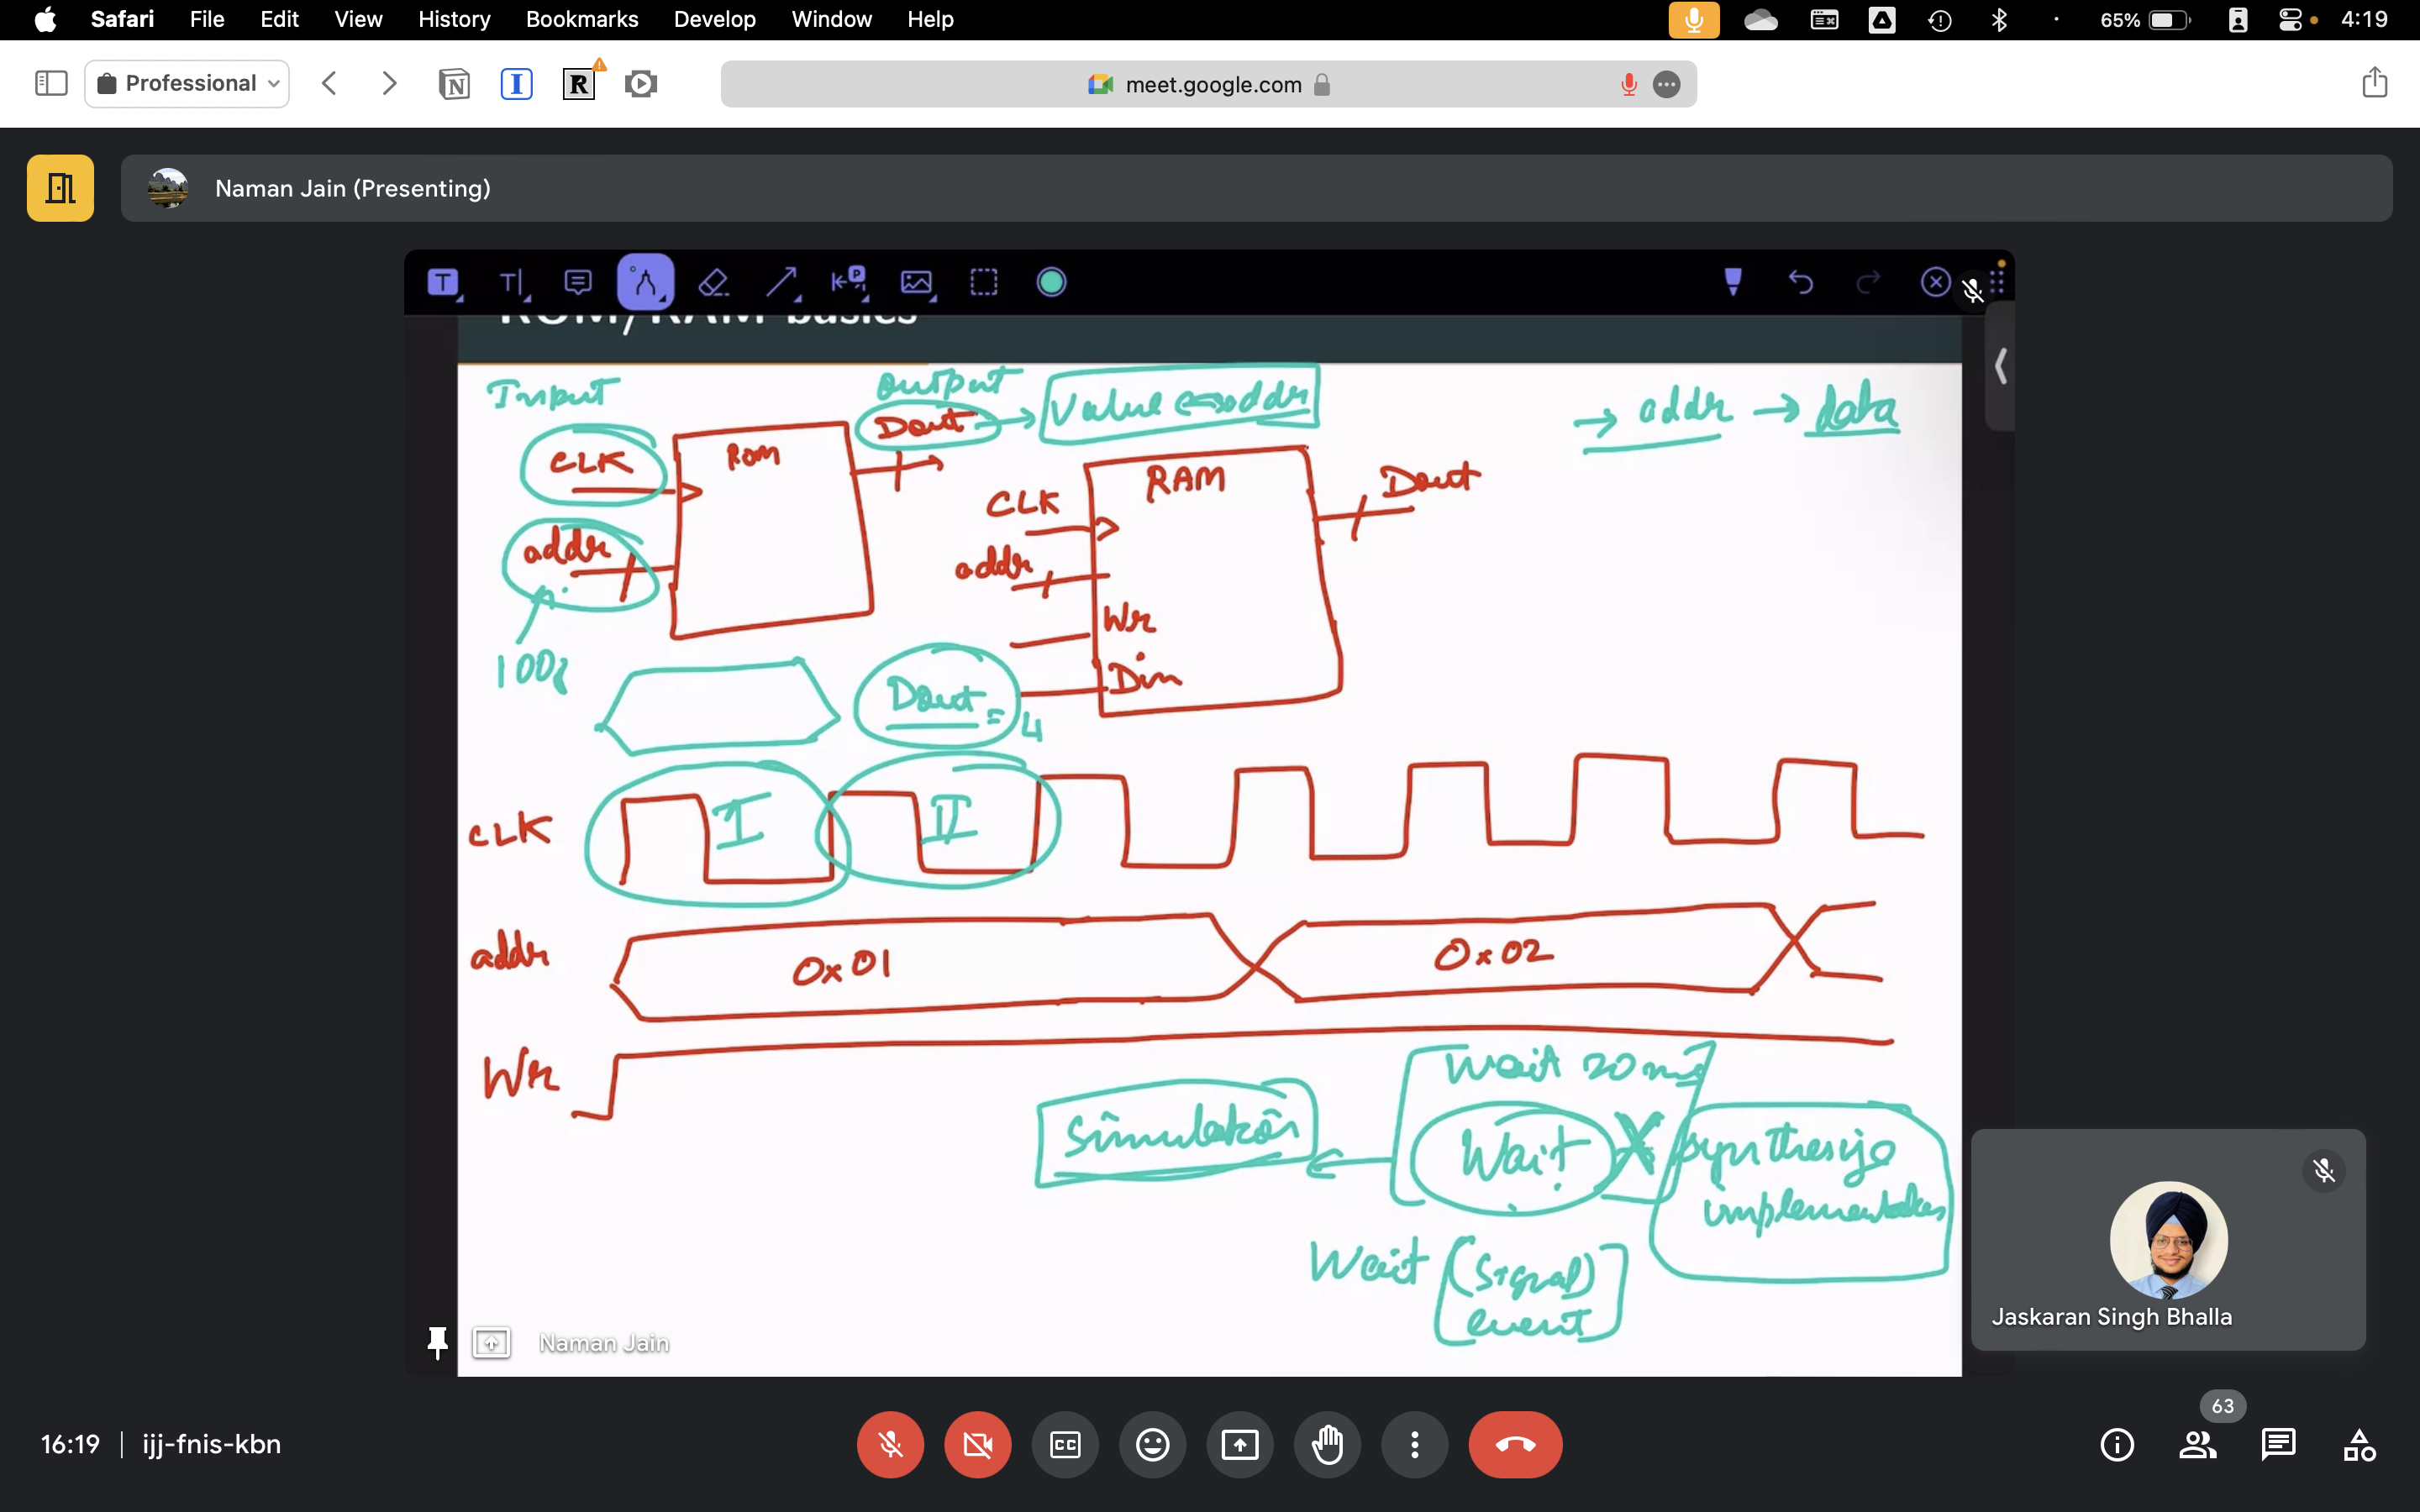 Safari File Edit View History Bookmarks Develop Window Help 65% 4:19
Professional meet.google.com
Naman Jain (Presenting)
ROM/RAM basics
Input output Value addr → addr → data
CLK Rom Dout
addr
CLK RAM Dout
addr
Wr
Din
Dout = 4
CLK I II
addr 0x01 0x02
Wr
Wait 20ns
Simulation Wait X synthesis
Wait (signal)
event
Naman Jain
Jaskaran Singh Bhalla
63
16:19 | ijj-fnis-kbn